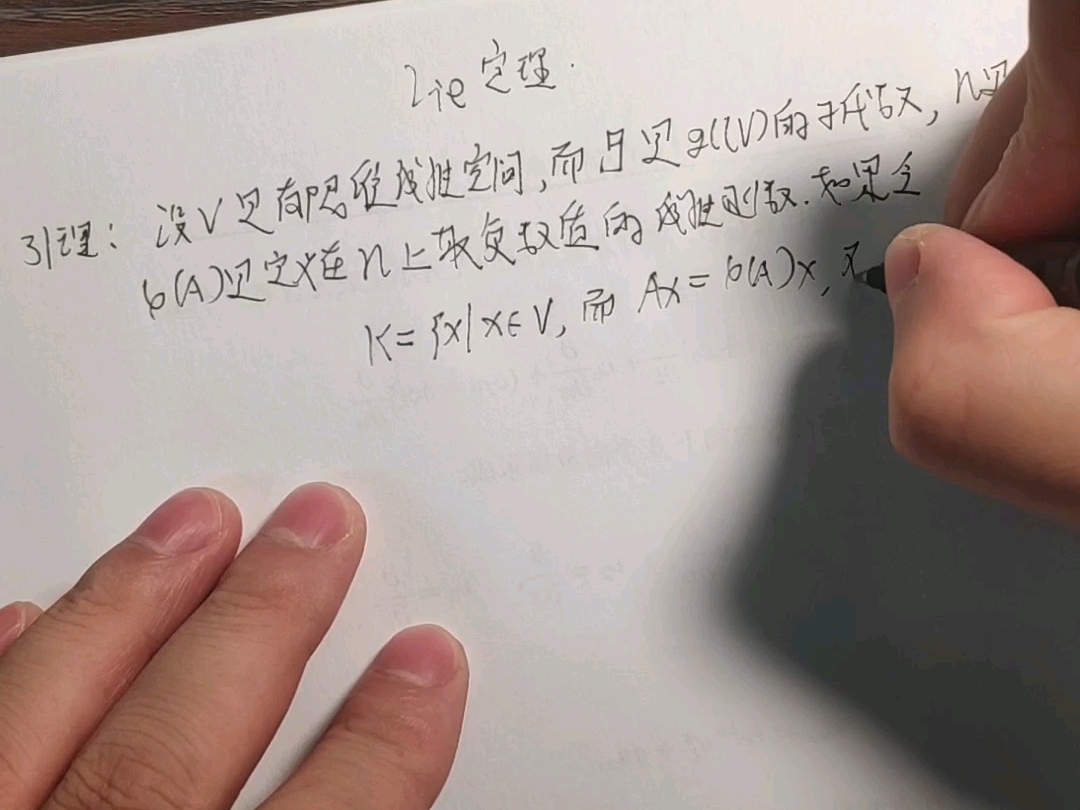 Lie 定理.
引理: 设V是有限维线性空间,而g是gl(V)的子代数,n是
σ(A)是定义在n上取复数值的线性函数.如果令
K={x|x∈V,而 Ax=σ(A)x,